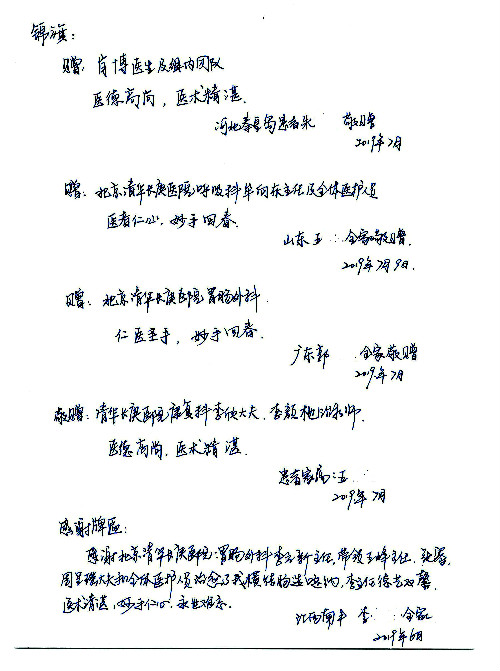 锦旗:
赠:肖博医生及组内团队
医德高尚,医术精湛.
河北秦皇岛患者朱 敬赠
2019年7月
赠:北京清华长庚医院呼吸科牟向东主任及全体医护人员
医者仁心,妙手回春.
山东王 全家敬赠.
2019年7月9日.
赠:北京清华长庚医院胃肠外科.
仁医圣手,妙手回春.
广东郭 全家敬赠
2019年7月
敬赠:清华长庚医院康复科李欣大夫,李颖 治疗师.
医德高尚,医术精湛.
患者家属:王
2019年7月
感谢牌匾:
感谢北京清华长庚医院胃肠外科李元新主任,带领王峰主任,张磊,
周 大夫和全体医护人员治愈了我横结肠造 ,李主任德艺双馨,
医术清湛,妙手仁心.永世难忘.
江西南丰 李 全家
2019年6月